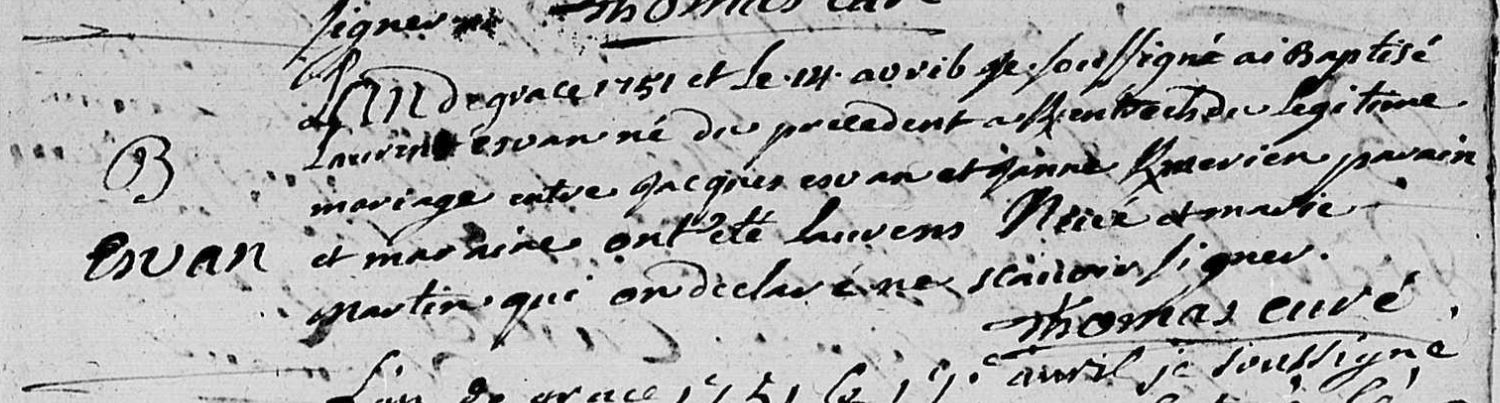 signer Thomas curé
L'An de grace 1751 et le 14 avril je soussigné ai Baptisé
B
Laurens esvan né du precedent a du legitime
mariage entre jacques esvan et janne parain
Esvan
et maraine ont été laurens et marie
martin qui on declaré ne scavoir signer.
Thomas curé
L'an de grace 1751 avril je soussigné